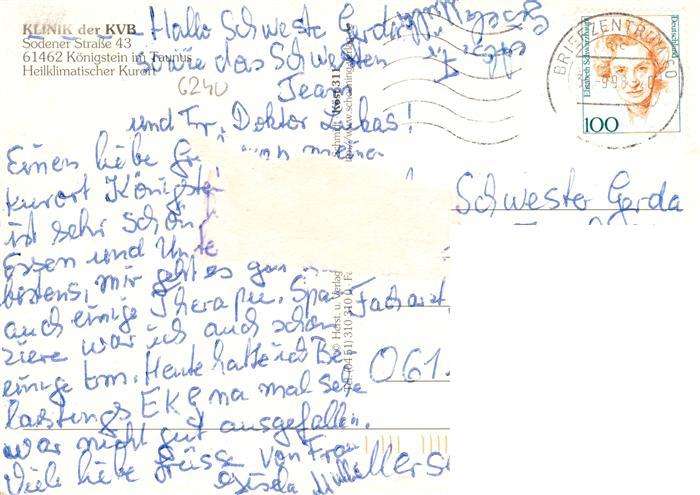 KLINIK der KVB
Sodener Straße 43
61462 Königstein im Taunus
Heilklimatischer Kurort
6240
Hallo Schweste Gerda
sowie das Schwestern
Team
und Fr. Doktor Lukas!
Einen liebe
kurort Königste
ist sehr schön
Essen und Unte
bestens, mir geht es
auch einige Therapie. Spa
ziere war ich auch schon
einige km. Heute hatte ich Be
lastungs EKG na mal sehe
war nicht gut ausgefallen.
Viele liebe Grüsse von Frau
Gisela
Schwester Gerda
Facharzt
061
BRIEFZENTRUM
Deutschland
Elisabeth Schwarzhaupt
100
© Horst. u. Verlag